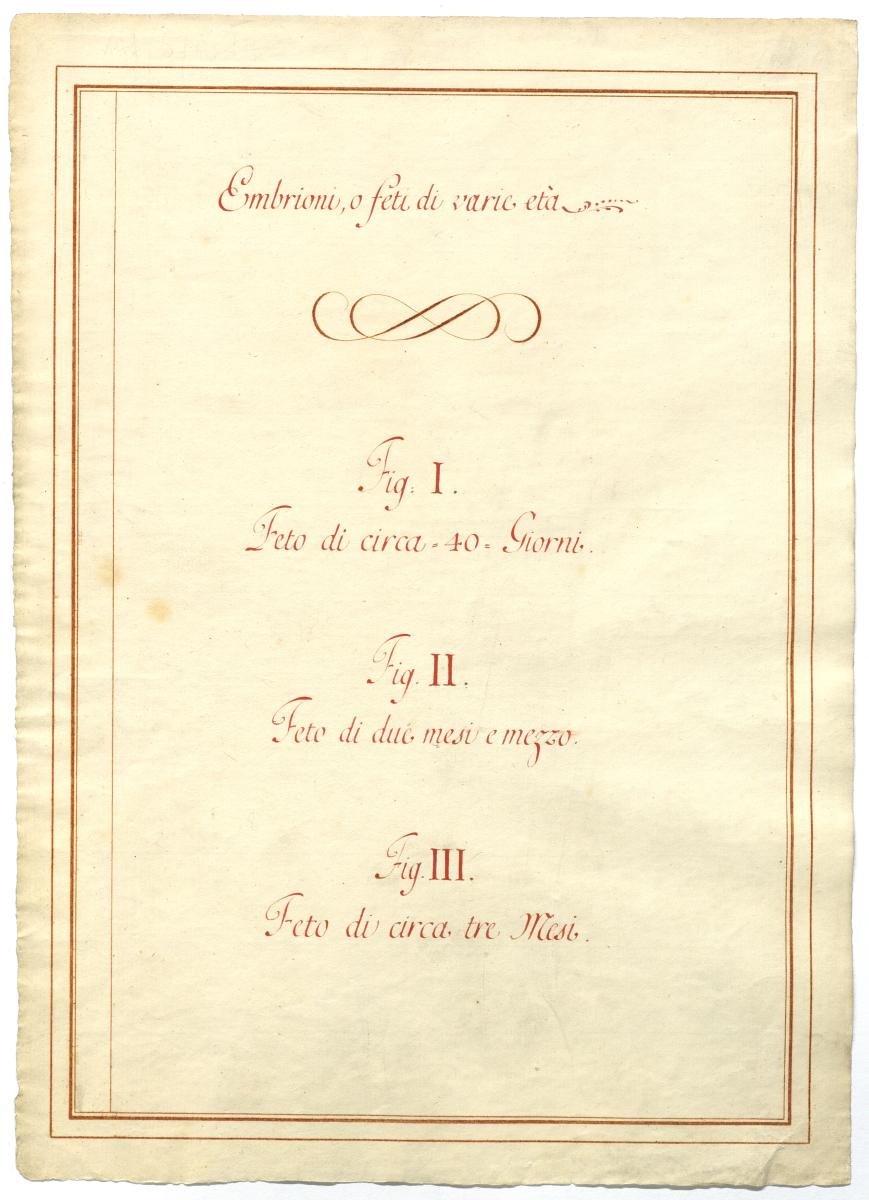 Embrioni, o feti di varie età
Fig: I.
Feto di circa = 40 = Giorni.
Fig. II.
Feto di due mesi e mezzo.
Fig. III.
Feto di circa tre Mesi.